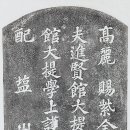 高麗 賜紫金
夫進賢館大提
館大提學上護
配 塩州